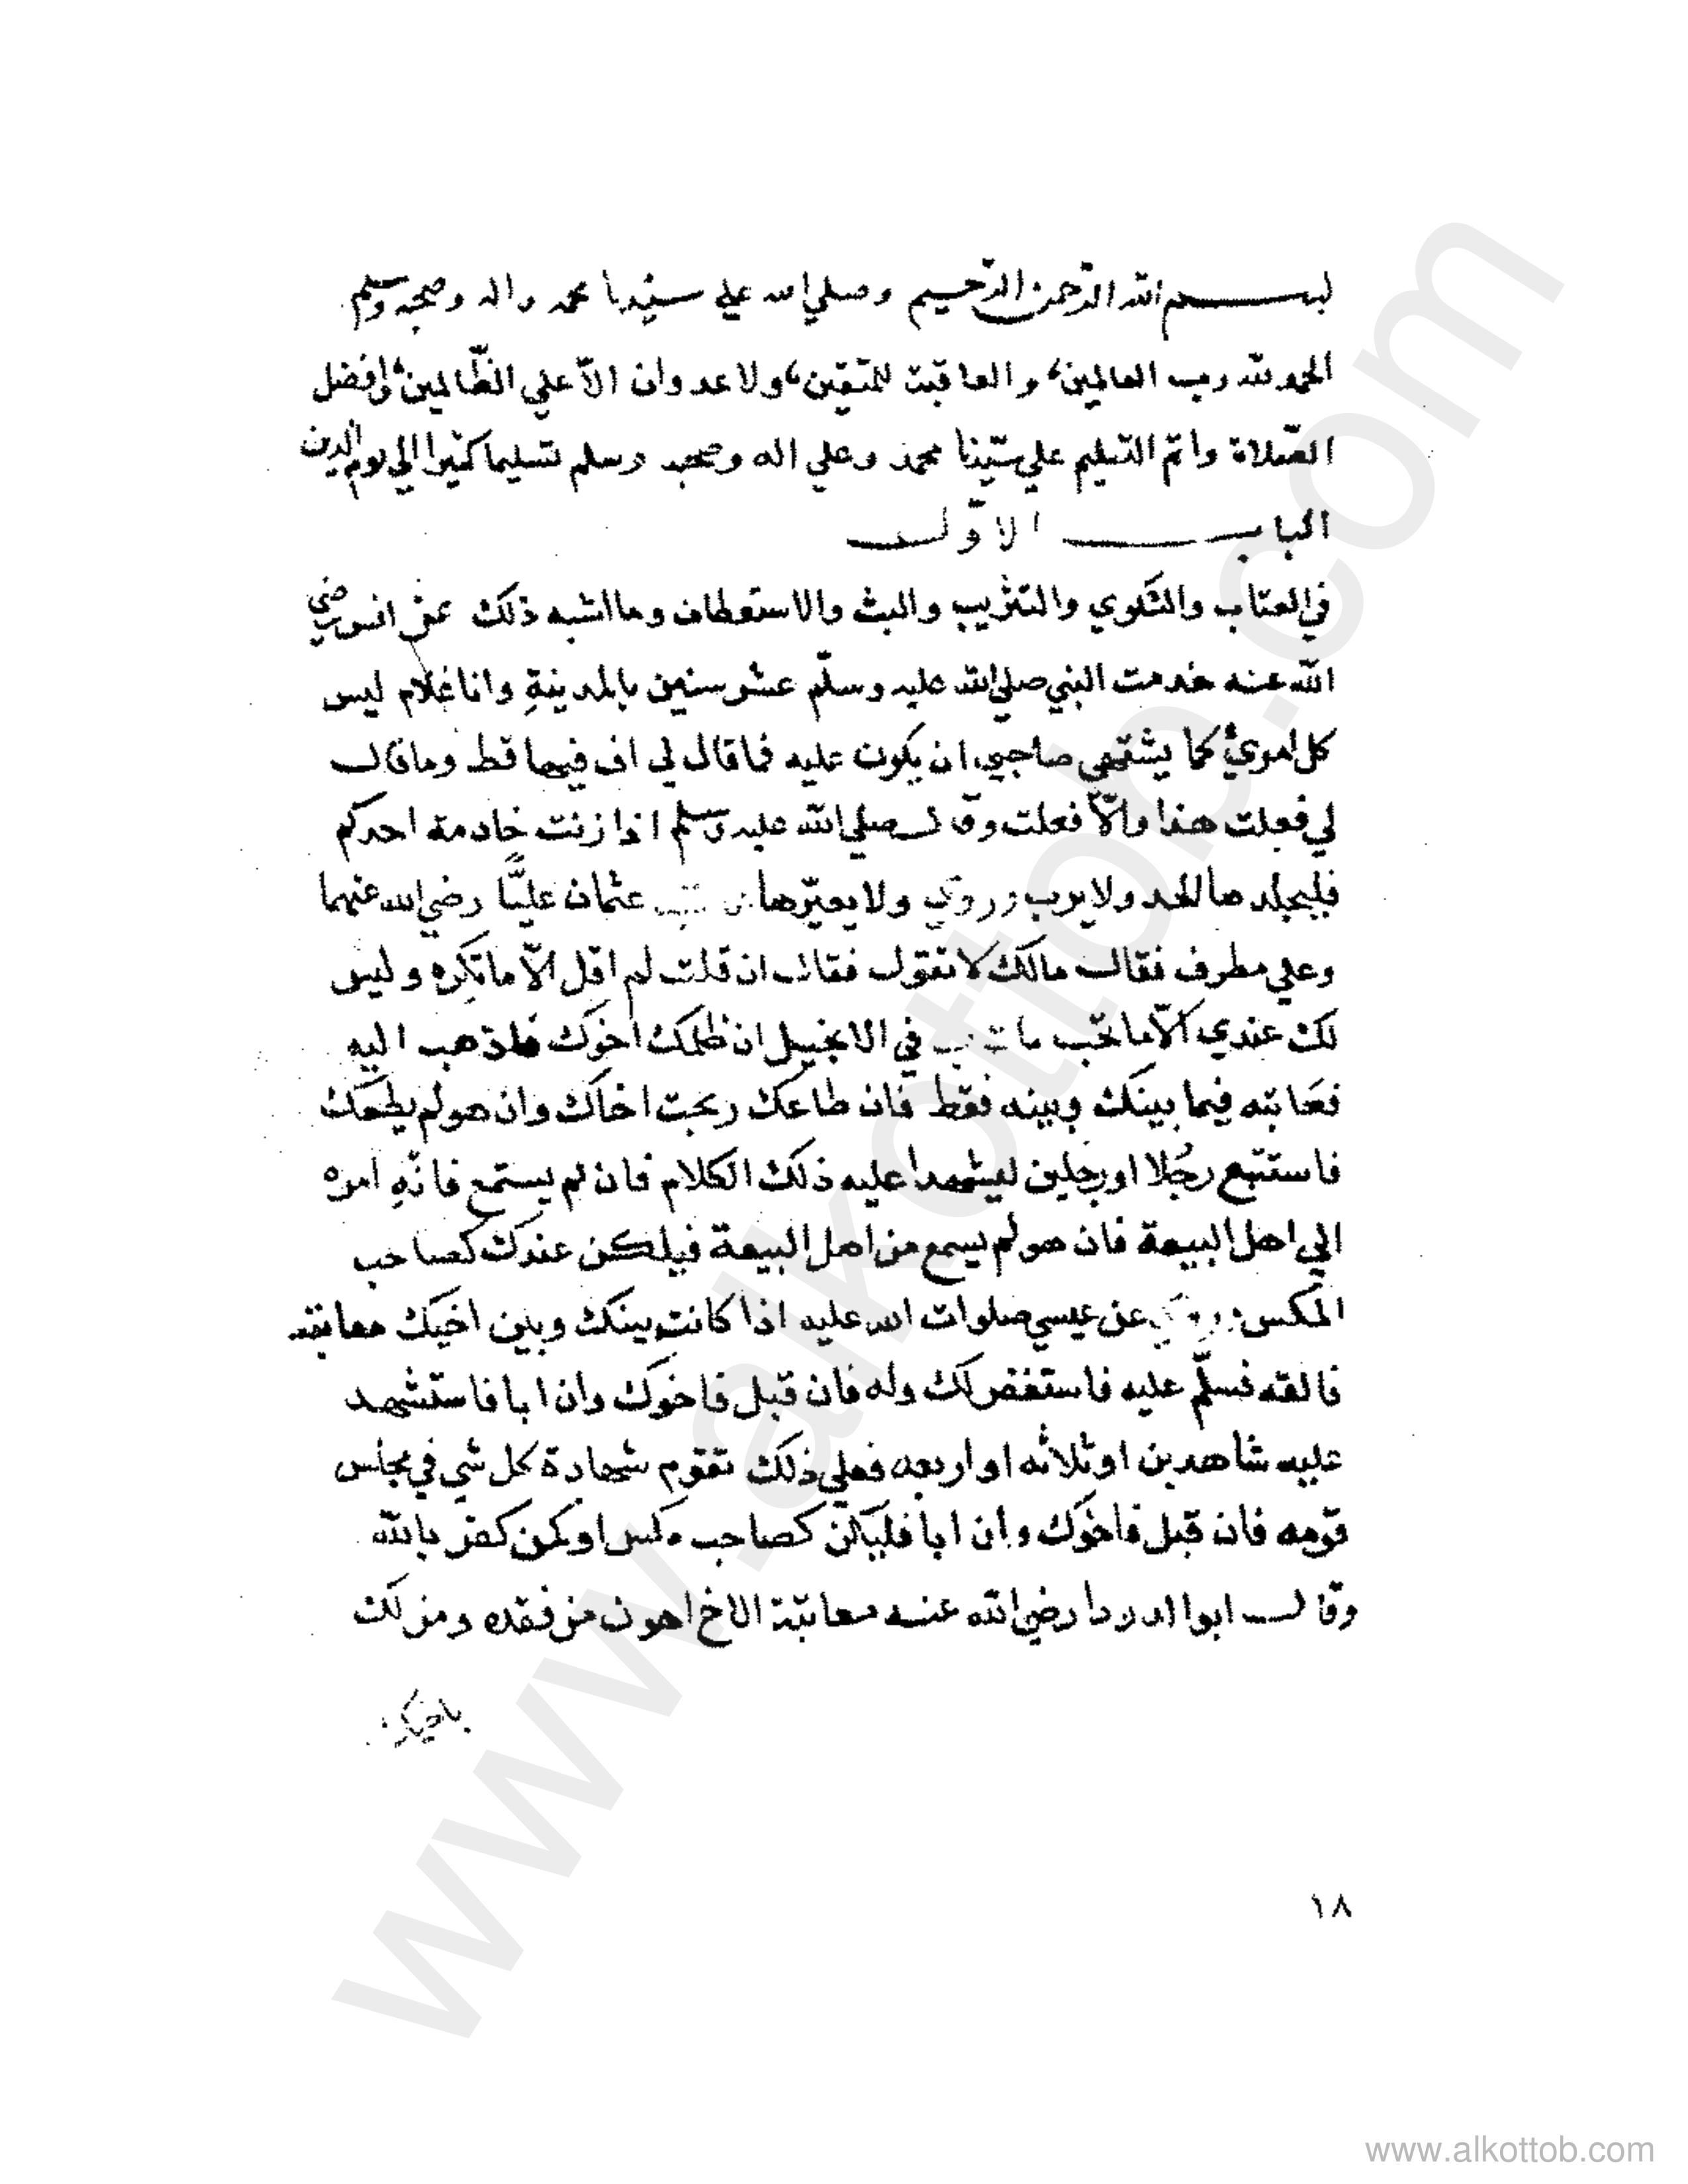 بسم الله الرحمن الرحيم وصلي الله علي سيدنا محمد واله وصحبه وسلم
الحمد لله رب العالمين، والعاقبة للمتقين، ولا عدوان الاّ علي الظّالمين، وافضل
الصّلاة واتمّ التسليم علي سيّدنا محمد وعلي اله وصحبه وسلم تسليما كثيرا الي يوم الدين
الباب الاوّل
في العتاب والشكوي والتثريب والبث والاستعطاف وما اشبه ذلك عن انس رضي
الله عنه خدمت النبي صلي الله عليه وسلّم عشر سنين بالمدينةِ وانا غلام ليس
كل امرئ كما يشتهي صاحبي ان يكون عليه فما قال لي اف فيها قط وما قال
لي فعلت هذا والاّ فعلت وقال صلي الله عليه وسلم اذا زنت خادمة احدكم
فليجلدها الحد ولا يرب وروي ولا يعيّرها عثمان عليًّا رضي الله عنهما
وعلي مطرف فقال مالك لا تقول فقال ان قلت لم اقل الاّ ما تكره وليس
لك عندي الاّ ما تحّب في الانجيل ان ظلمك اخوك فاذهب اليه
فعاتبه فيما بينك وبينه فقط فان طاعك ربحت اخاك وان هو لم يطعك
فاستتبع رجُلا او رجلين ليشهدا عليه ذلك الكلام فان لم يستمع فانهِ امره
الي اهل البيعة فان هو لم يسمع من اهل البيعة فيلكن عندك كصاحب
المكس عن عيسي صلوات الله عليه اذا كانت بينك وبين اخيك معاتبة
فالقه فسلّم عليه فاستغفر لك وله فان قبل فاخوك وان ابا فاستشهد
عليه شاهدين او ثلاثه او اربعه فعلي ذلك تقوم شهادة كل شي في مجلس
قومه فان قبل فاخوك وان ابا فليكن كصاحب مكس او كمن كفر بالله
وقال ابو الدردا رضي الله عنه معاتبة الاخ اهون من فقده ومن لك
باخيك
١٨
www.alkottob.com
www.alkottob.com